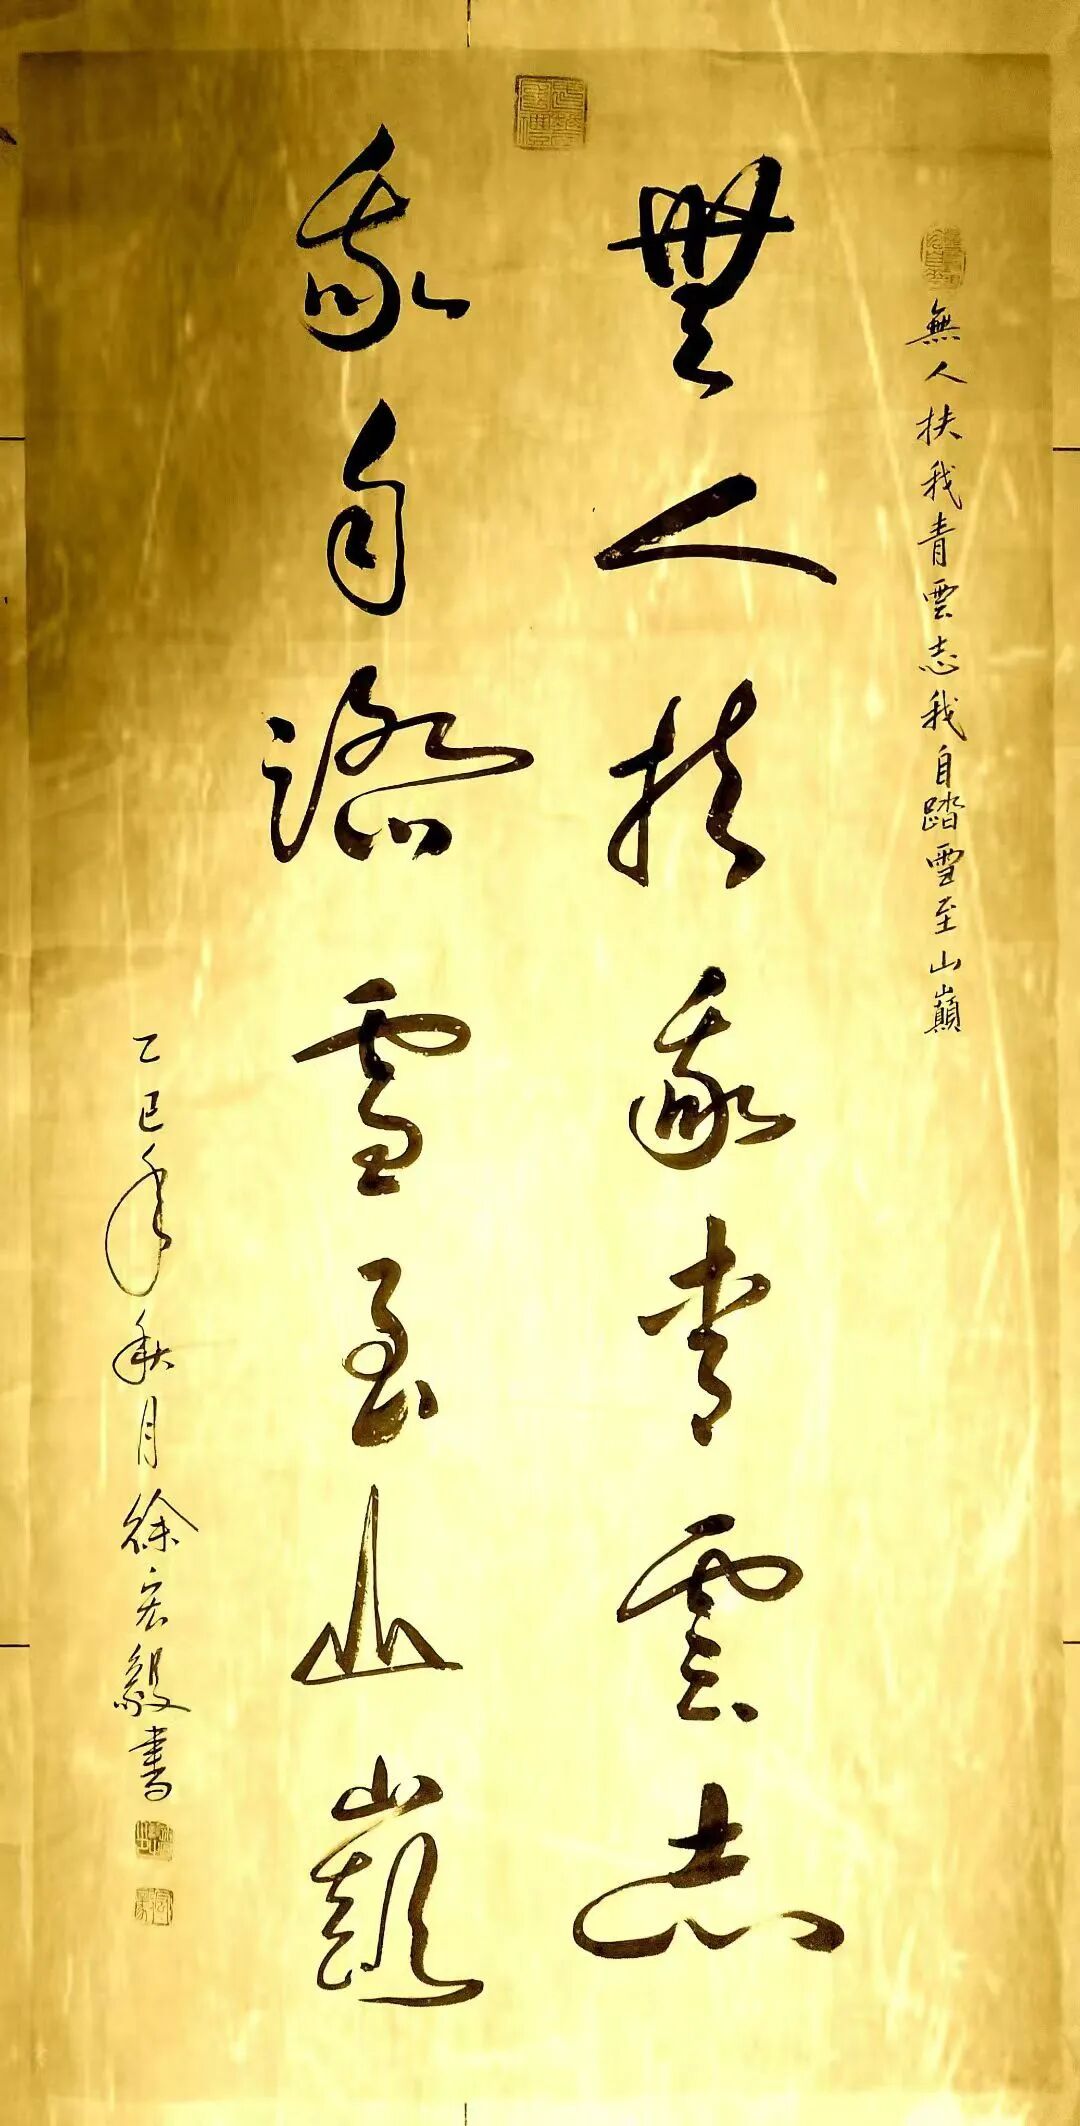 無人扶我青雲志我自踏雪至山巔
無人扶我青雲志
我自踏雪至山巔
乙巳年秋月徐宏毅書